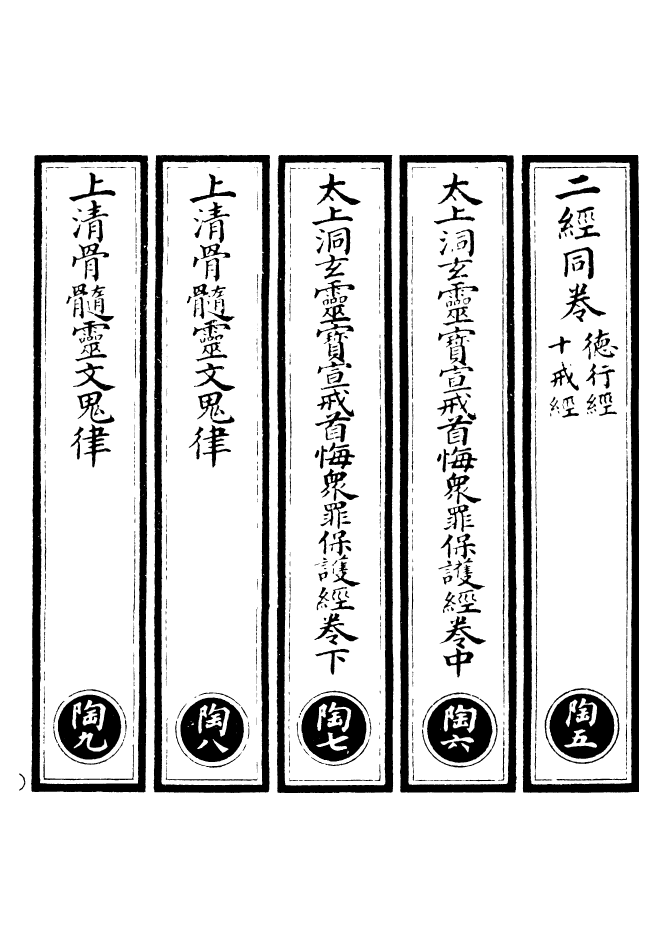 二經同卷
德行經
十戒經
陶五
太上洞玄靈寶宣戒首悔衆罪保護經卷中
陶六
太上洞玄靈寶宣戒首悔衆罪保護經卷下
陶七
上清骨髓靈文鬼律
陶八
上清骨髓靈文鬼律
陶九